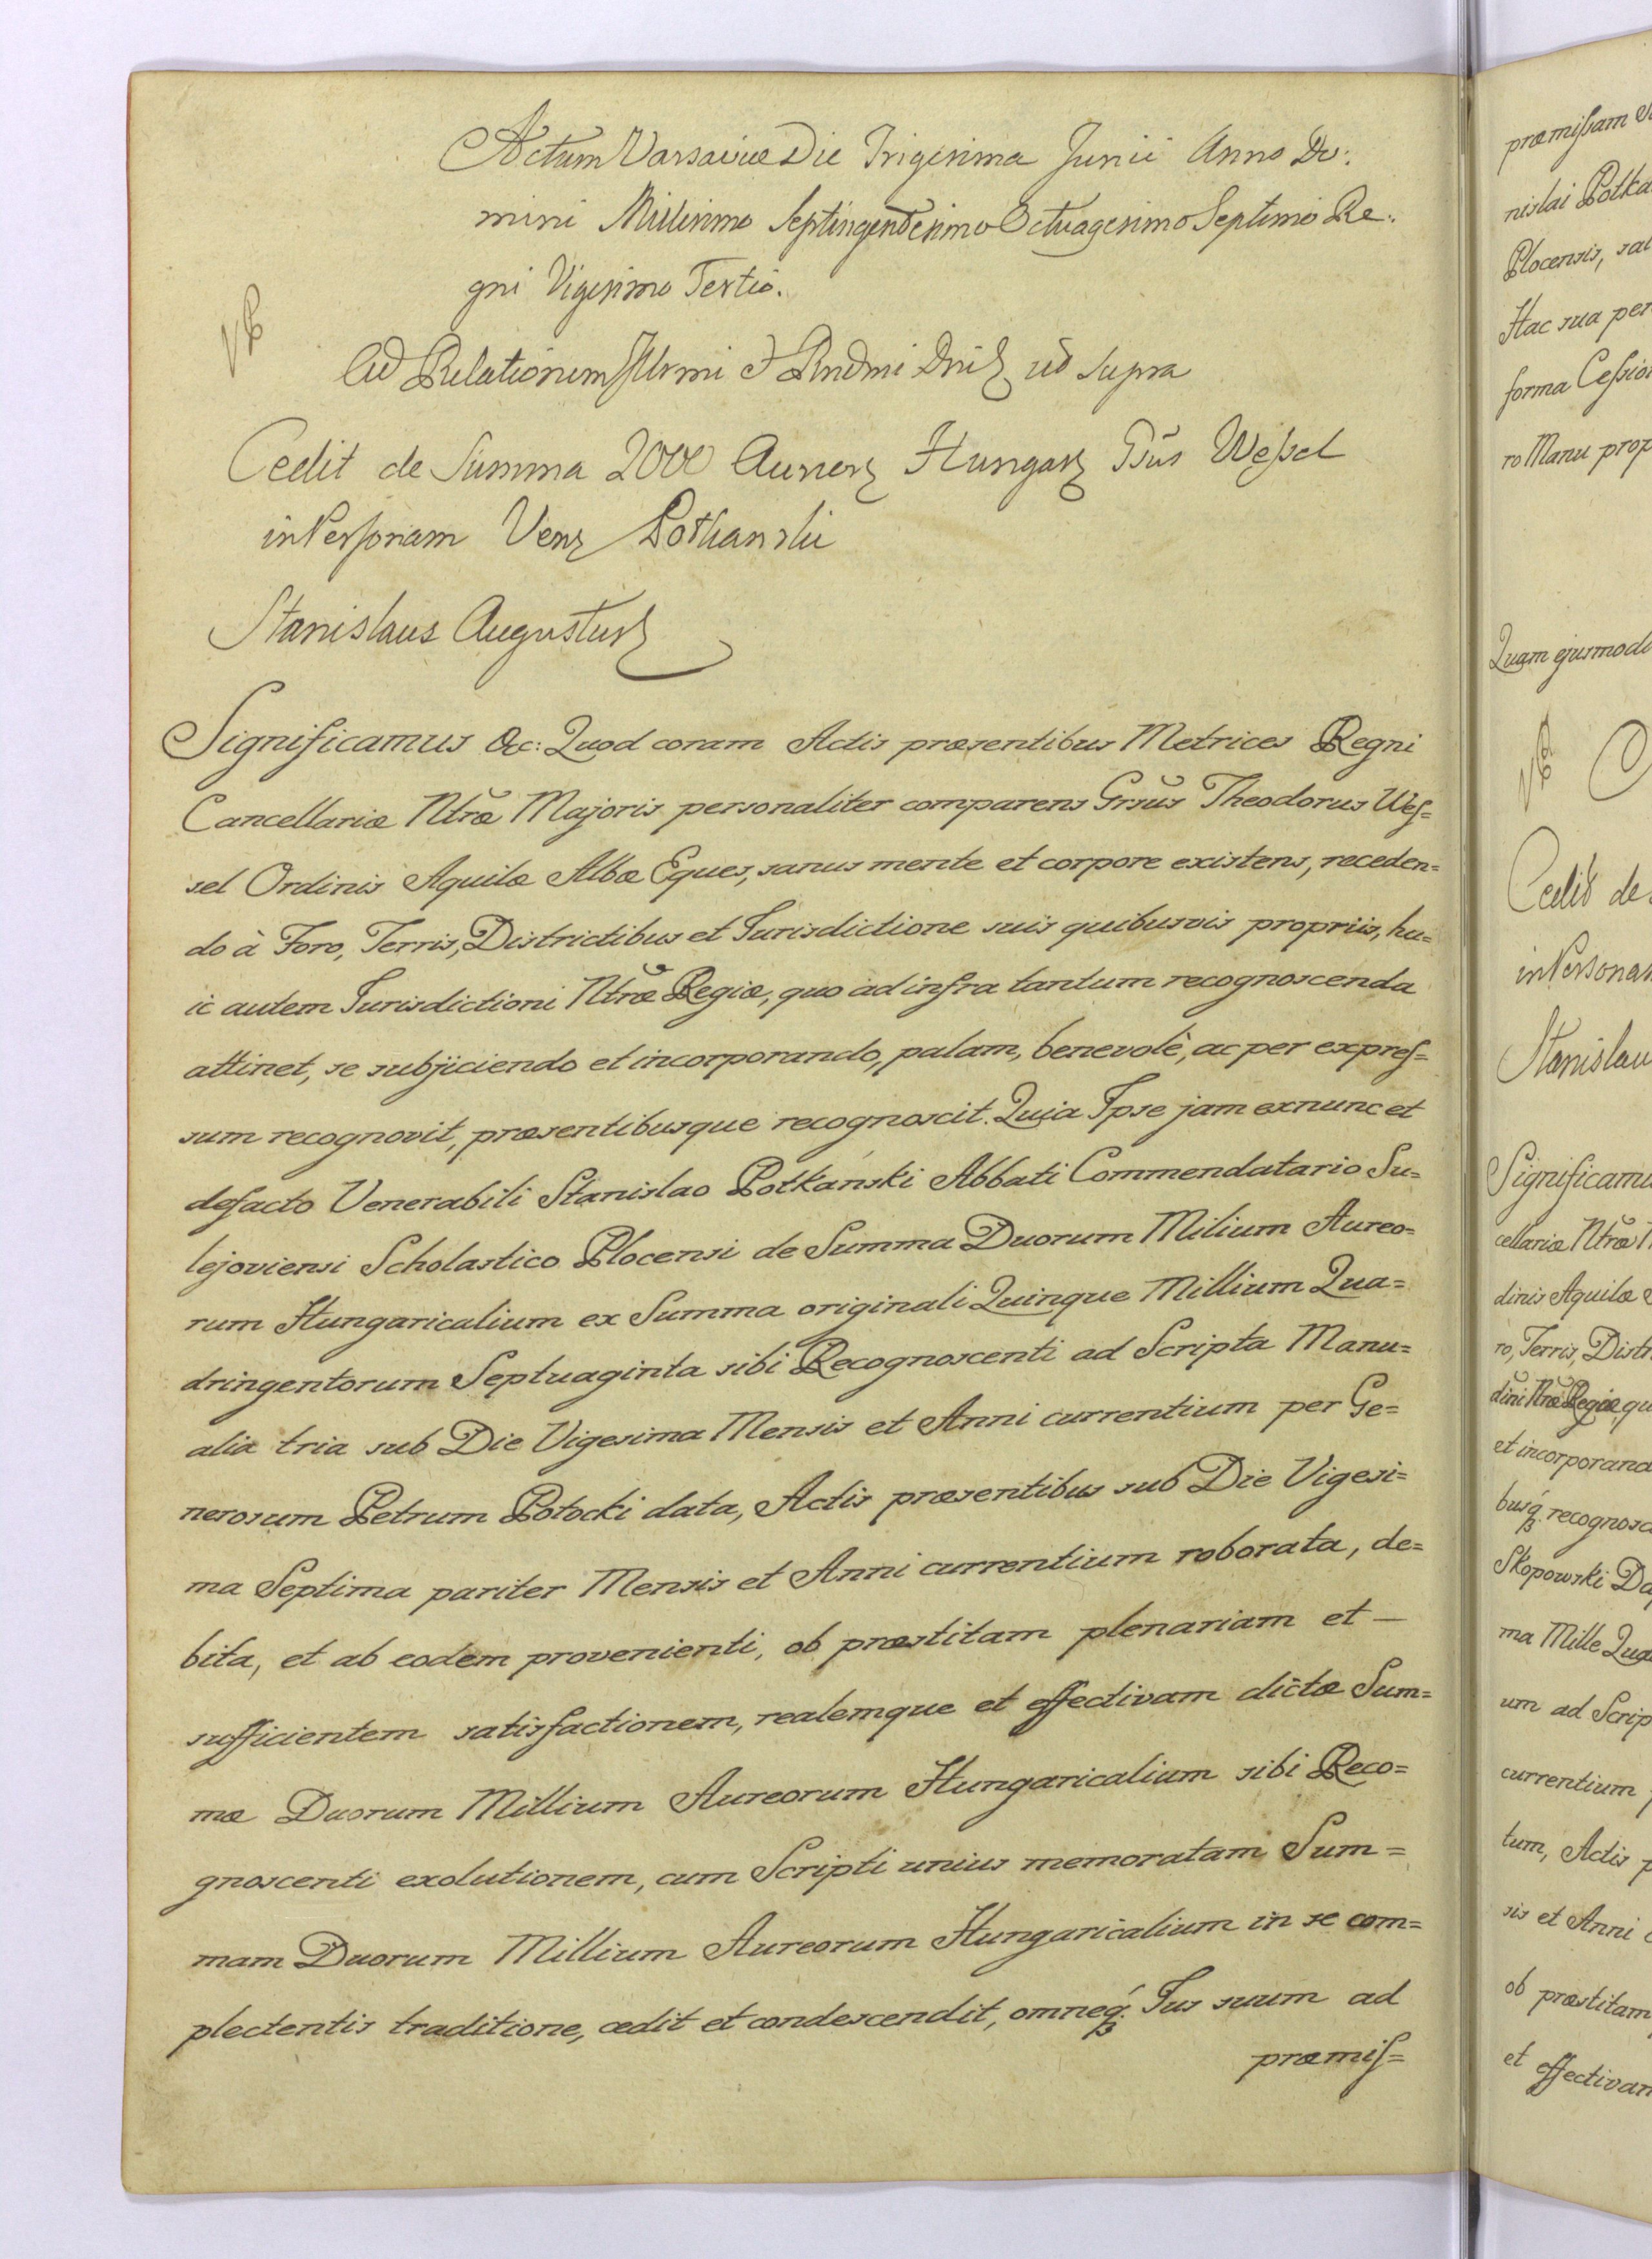 Actum Varsaviæ Die Trigesima Junii Anno Do:
mini Millesimo Septingentesimo Octuagesimo Septimo Re:
gni Vigesimo Tertio.
Ad Relationem Illrmi & Rndmi Dni ut supra
Cedit de Summa 2000 Aureor Hungar Gsũs Weſsel
in Personam Venr Potkanski
Stanislaus Augustus
Significamus &c: Quod coram Actis præsentibus Metrices Regni
Cancellariæ Ntræ Majoris personaliter comparens Grsũs Theodorus Weſ=
sel Ordinis Aquilæ Albæ Eques, sanus mente et corpore existens, receden=
do à Foro, Terris, Districtibus et Jurisdictione suis quibusvis propriis, hu=
ic autem Jurisdictioni Ntræ Regiæ, quo ad infra tantum recognoscenda
attinet, se subjiciendo et incorporando, palam, benevolè, ac per expreſ=
sum recognovit, præsentibusque recognoscit. Quia Ipse jam exnunc et
defacto Venerabili Stanislao Potkański Abbati Commendatario Su=
lejoviensi Scholastico Plocensi de Summa Duorum Milium Aureo=
rum Hungaricalium ex Summa originali Quinque Millium Qua=
dringentorum Septuaginta sibi Recognoscenti ad Scripta Manu=
alia tria sub Die Vigesima Mensis et Anni currentium per Ge=
nerosum Petrum Potocki data, Actis præsentibus sub Die Vigesi=
ma Septima pariter Mensis et Anni currentium roborata, de=
bita, et ab eodem provenienti, ob præstitam plenariam et —
sufficientem satisfactionem, realemque et effectivam dictæ Sum=
mæ Duorum Millium Aureorum Hungaricalium sibi Reco=
gnoscenti exolutionem, cum Scripti unius memoratam Sum=
mam Duorum Millium Aureorum Hungaricalium in se com=
plectentis traditione, cedit et condescendit, omneq́ꝫ. Jus suum ad
præmiſ=
præmiſsam
nislai Potka
Plocensis, sal
Hac sua per
forma Ceſsio
ro Manu prop
Quam ejusmodi
Cedit de
in Persona
Stanislau
Significamu
cellariæ Ntræ
dinis Aquilæ
ro, Terris, Distr
Ntræ Regiæ, qu
et incorporand
busq́ꝫ. recognosc
Skopowski
ma Mille
um ad Scrip
currentium
tum, Actis p
sis et Anni
ob præstitam
et effectivam